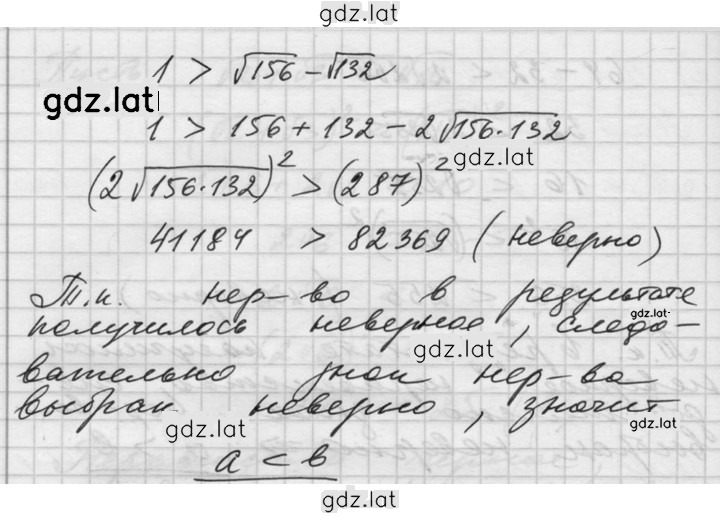 gdz.lat
1 > √156 - √132
gdz.lat
1 > 156 + 132 - 2√156·132
gdz.lat
(2√156·132)² > (287)²
41184 > 82369 (неверно)
Т.к. нер-во в результате
gdz.lat
получилось неверное, следо-
gdz.lat
вательно знак нер-ва
выбран неверно, значит
gdz.lat
gdz.lat
a < в
gdz.lat